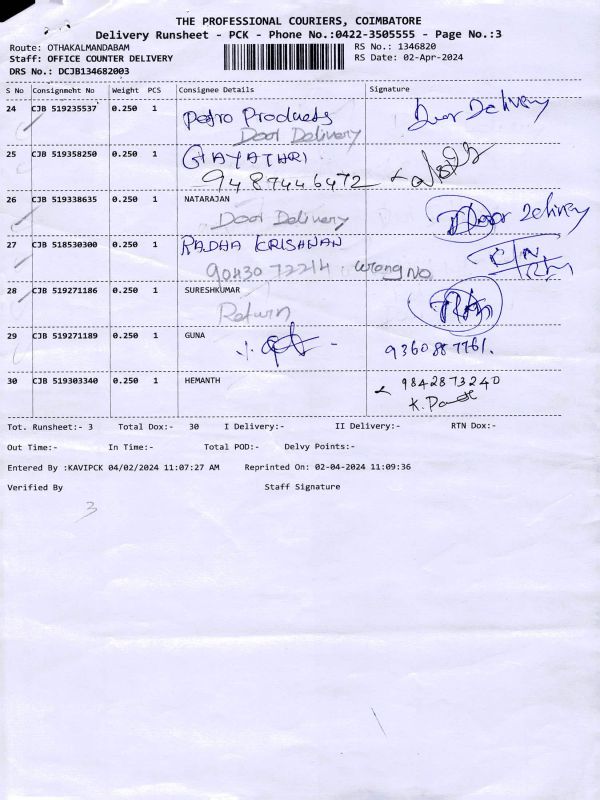 THE PROFESSIONAL COURIERS, COIMBATORE
Delivery Runsheet - PCK - Phone No.:0422-3505555 - Page No.:3
Route: OTHAKALMANDABAM
RS No.: 1346820
Staff: OFFICE COUNTER DELIVERY
RS Date: 02-Apr-2024
DRS No.: DCJB134682003
S No Consignmeht No Weight PCS Consignee Details Signature
24 CJB 519235537 0.250 1 Petro Products Door Delivery
Door Delivery
25 CJB 519358250 0.250 1 GAYATHRI
9487446472
26 CJB 519338635 0.250 1 NATARAJAN
Door Delivery Door Delivery
27 CJB 518530300 0.250 1 RADHA KRISHNAN
9043072214 wrong No
28 CJB 519271186 0.250 1 SURESHKUMAR
Return
29 CJB 519271189 0.250 1 GUNA
9360887761.
30 CJB 519303340 0.250 1 HEMANTH 9842873240
K.
Tot. Runsheet:- 3 Total Dox:- 30 I Delivery:- II Delivery:- RTN Dox:-
Out Time:- In Time:- Total POD:- Delvy Points:-
Entered By :KAVIPCK 04/02/2024 11:07:27 AM Reprinted On: 02-04-2024 11:09:36
Verified By Staff Signature
3